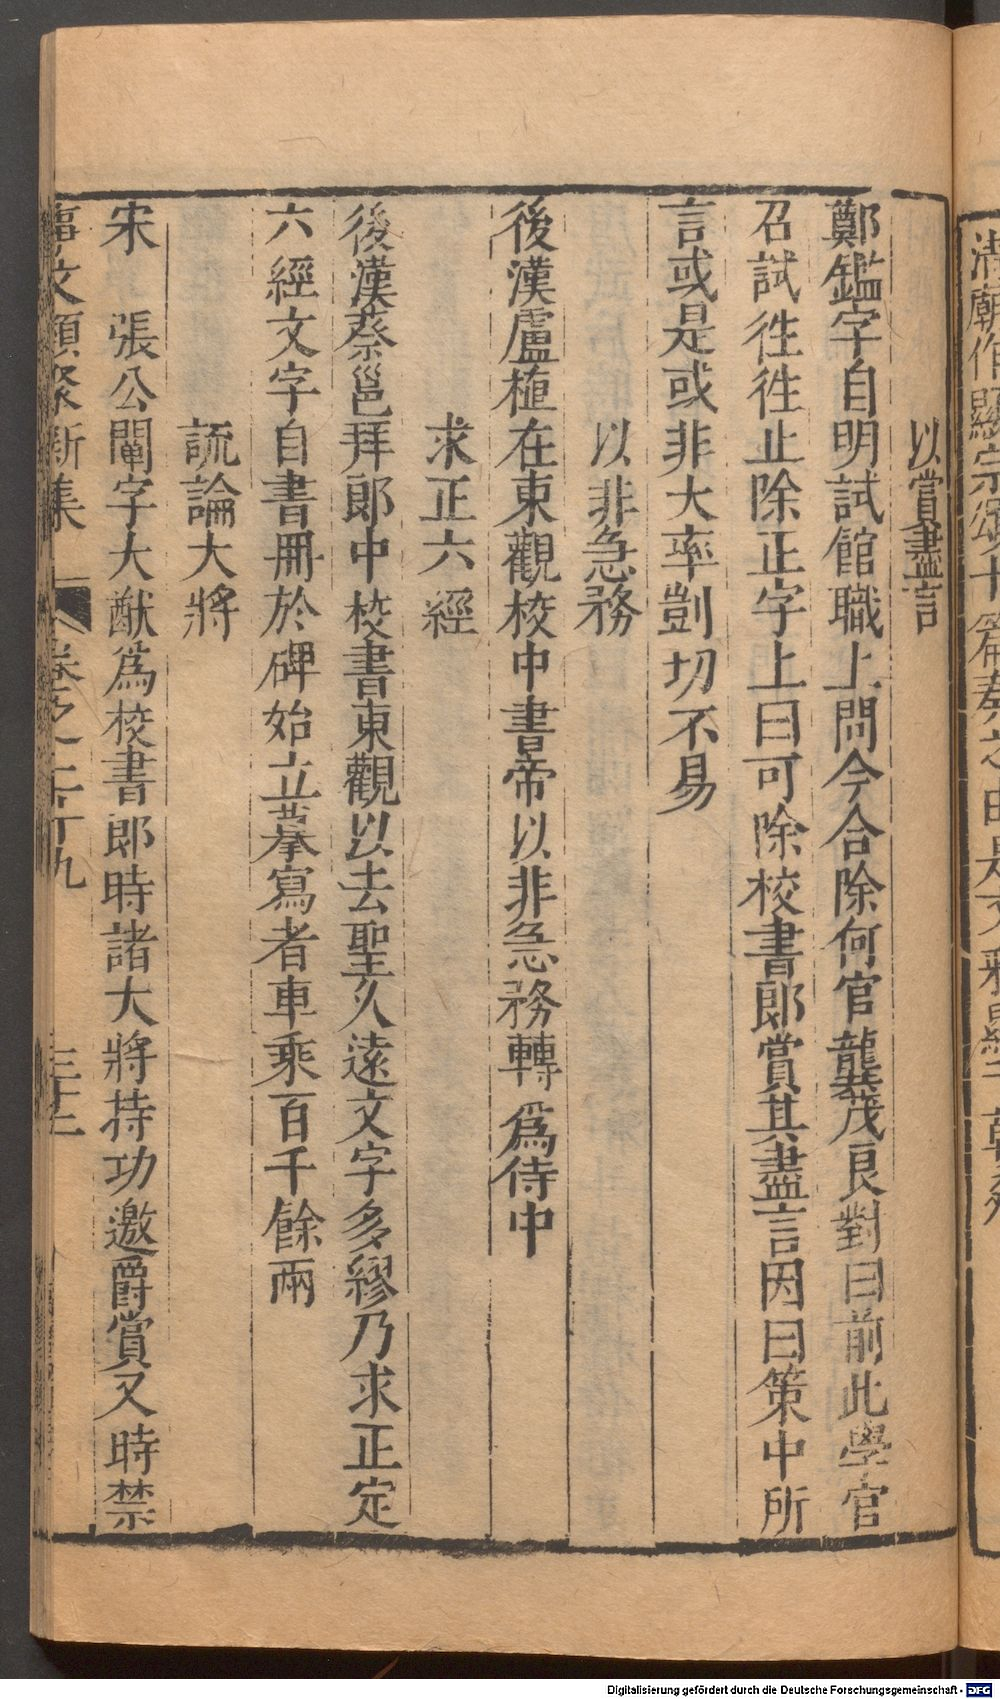 清廟作顯宗頌十篇奏之由是文
以賞盡言
鄭鑑字自明試館職上問今合除何官龔茂良對曰前此學官
召試徃徃止除正字上曰可除校書郎賞其盡言因曰策中所
言或是或非大率剴切不易
以非急務
後漢盧植在東觀校中書帝以非急務轉為侍中
求正六經
後漢蔡邕拜郎中校書東觀以去聖久遠文字多繆乃求正定
六經文字自書冊於碑始立摹寫者車乘百千餘兩
䟽論大將
宋 張公闡字大猷為校書郎時諸大將持功邀爵賞又時禁
事文類聚新集 卷之二十九 三十二
Digitalisierung gefördert durch die Deutsche Forschungsgemeinschaft - DFG